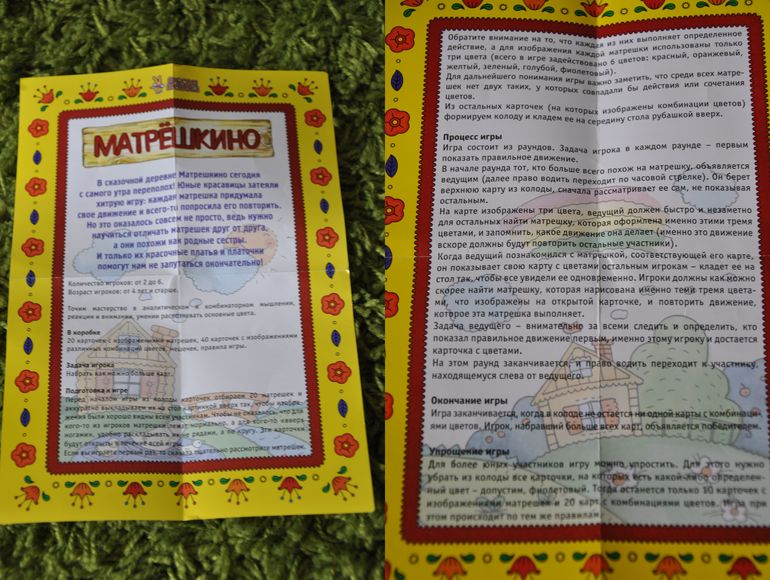 МАТРЁШКИНО
В сказочной деревне Матрешкино сегодня
с самого утра переполох! Юные красавицы затеяли
хитрую игру: каждая матрешка придумала
свое движение и всего-то попросила его повторить.
Но это оказалось совсем не просто, ведь нужно
научиться отличать матрешек друг от друга,
а они похожи как родные сестры.
И только их красочные платья и платочки
помогут нам не запутаться окончательно!
Количество игроков: от 2 до 6.
Возраст игроков: от 4 лет и старше.
Точим мастерство в аналитическом и комбинаторном мышлении,
реакции и внимании, умении распознавать основные цвета.
В коробке
20 карточек с изображениями матрешек, 40 карточек с изображениями
различных комбинаций цветов, мешочек, правила игры.
Задача игрока
Набрать как можно больше карт.
Подготовка к игре
Перед началом игры из колоды карточек отбираем 20 матрешек и
аккуратно выкладываем их на стол картинкой вверх так, чтобы изобра-
жения были хорошо видны всем участникам, чтобы не оказалось, что для
кого-то из игроков матрешки лежат нормально, а для кого-то «вверх
ногами», удобно раскладывать их не рядами, а по кругу. Эти карточки
будут открыты в течение всей игры.
Если вы играете первый раз, то сначала тщательно рассмотрите матрешек.
Обратите внимание на то, что каждая из них выполняет определенное
действие, а для изображения каждой матрешки использованы только
три цвета (всего в игре задействовано 6 цветов: красный, оранжевый,
желтый, зеленый, голубой, фиолетовый).
Для дальнейшего понимания игры важно заметить, что среди всех матре-
шек нет двух таких, у которых совпадали бы действия или сочетания
цветов.
Из остальных карточек (на которых изображены комбинации цветов)
формируем колоду и кладем ее на середину стола рубашкой вверх.
Процесс игры
Игра состоит из раундов. Задача игрока в каждом раунде – первым
показать правильное движение.
В начале раунда тот, кто больше всего похож на матрешку, объявляется
ведущим (далее право водить переходит по часовой стрелке). Он берет
верхнюю карту из колоды, сначала рассматривает ее сам, не показывая
остальным.
На карте изображены три цвета, ведущий должен быстро и незаметно
для остальных найти матрешку, которая оформлена именно этими тремя
цветами, и запомнить, какое движение она делает (именно это движение
вскоре должны будут повторить остальные участники).
Когда ведущий познакомился с матрешкой, соответствующей его карте,
он показывает свою карту с цветами остальным игрокам – кладет ее на
стол так, чтобы все увидели ее одновременно. Игроки должны как можно
скорее найти матрешку, которая нарисована именно теми тремя цвета-
ми, что изображены на открытой карточке, и повторить движение,
которое эта матрешка выполняет.
Задача ведущего – внимательно за всеми следить и определить, кто
показал правильное движение первым, именно этому игроку и достается
карточка с цветами.
На этом раунд заканчивается, и право водить переходит к участнику,
находящемуся слева от ведущего.
Окончание игры
Игра заканчивается, когда в колоде не остается ни одной карты с комбинаци-
ями цветов. Игрок, набравший больше всех карт, объявляется победителем.
Упрощение игры
Для более юных участников игру можно упростить. Для этого нужно
убрать из колоды все карточки, на которых есть какой-либо определен-
ный цвет – допустим, фиолетовый. Тогда останется только 10 карточек с
изображениями матрешек и 20 карт с комбинациями цветов. Игра при
этом происходит по тем же правилам.